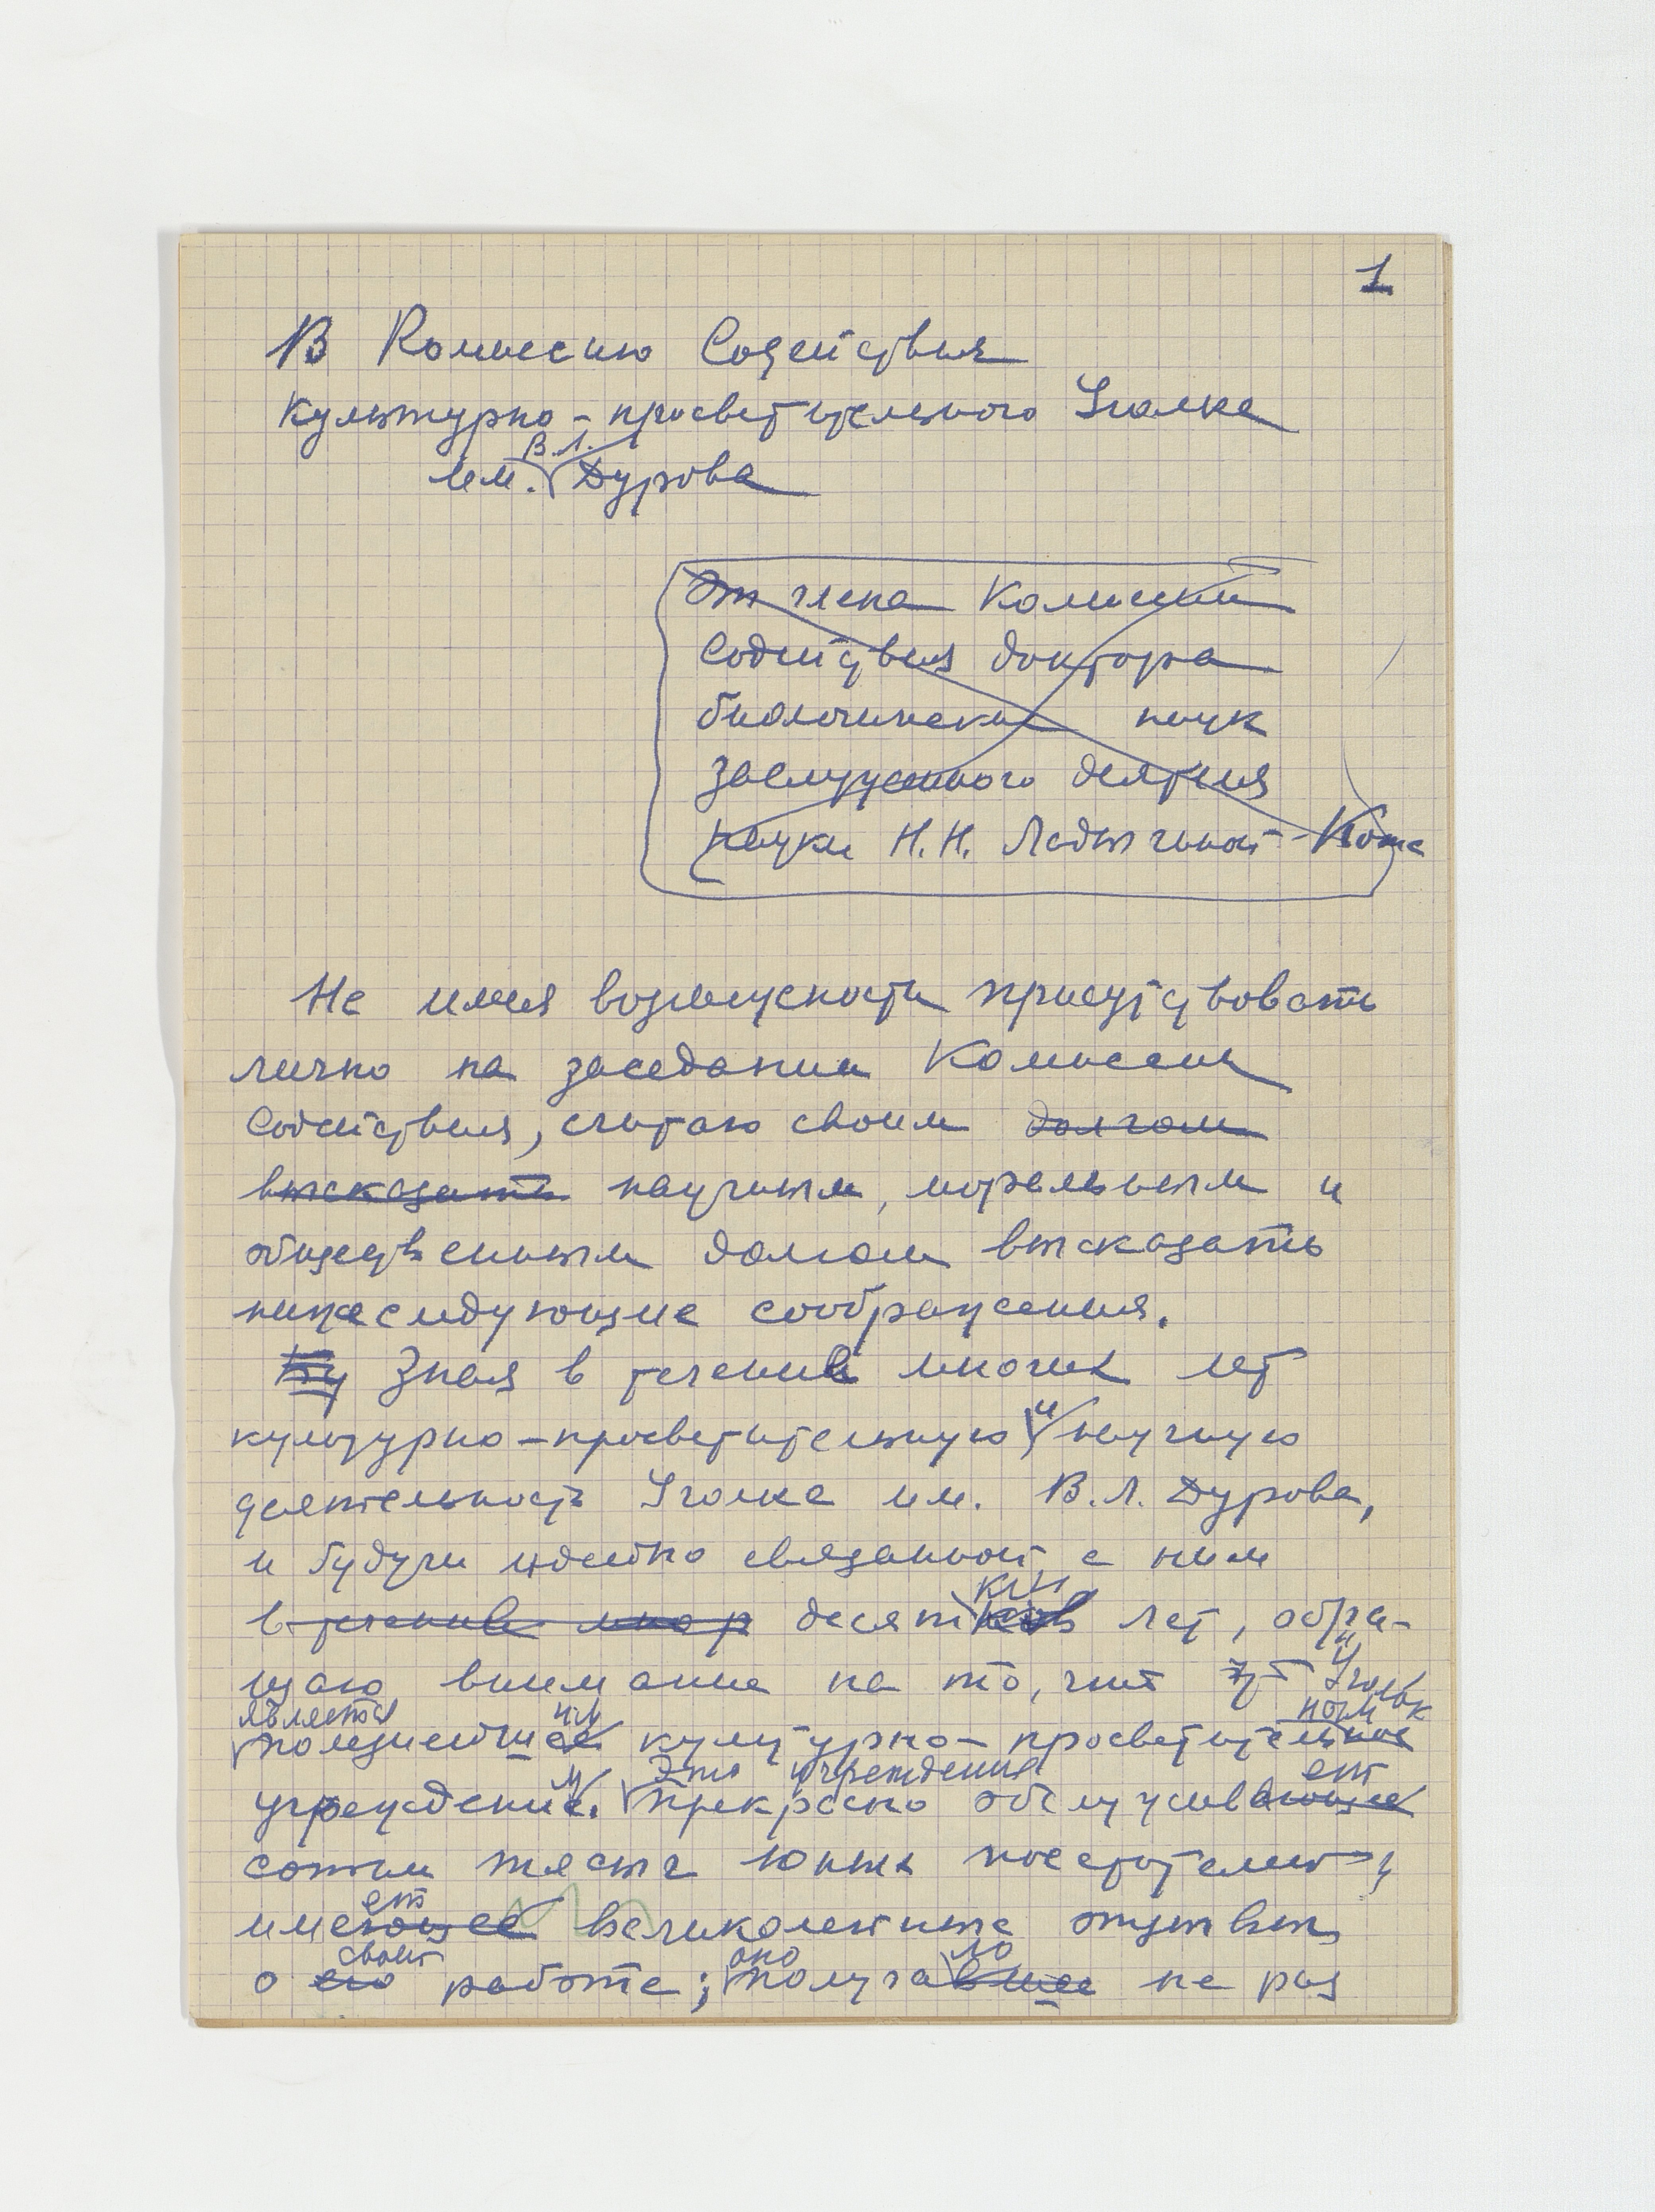 1
В Комиссию Содействия
Культурно-просветительного Уголка
им. В.Л. Дурова
От члена Комиссии
Содействия доктора
биологических наук
заслуженного деятеля
науки Н.Н. Ладыгиной-Котс
Не имея возможности присутствовать
лично на заседании Комиссии
Содействия, считаю своим долгом
высказать научным, моральным и
общественным долгом высказать
нижеследующие соображения.
Зная в течении многих лет
культурно-просветительную и научную
деятельность Уголка им. В.Л. Дурова,
и будучи идейно связанной с ним
в течении десятки лет, обра-
щаю внимание на то, что этот Уголок
является полезнейшим культурно-просветительным
учреждением. Это учреждение прекрасно обслуживает
сотни тысяч юных посетителей,
имеет великолепные отзывы
о своей работе; оно получало не раз